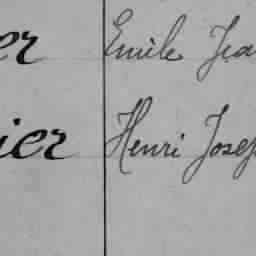 er Emile Jea
ier Henri Josep